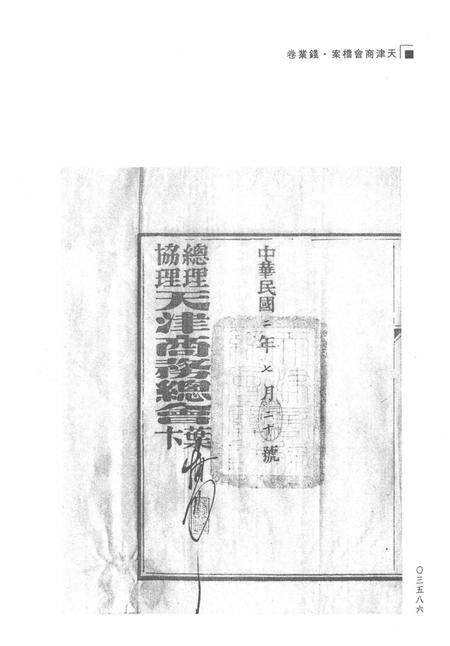 天津商會檔案·錢業卷
中華民國二年七月二十號
總理
協理
天津商務總會
葉
卞
〇三五八六